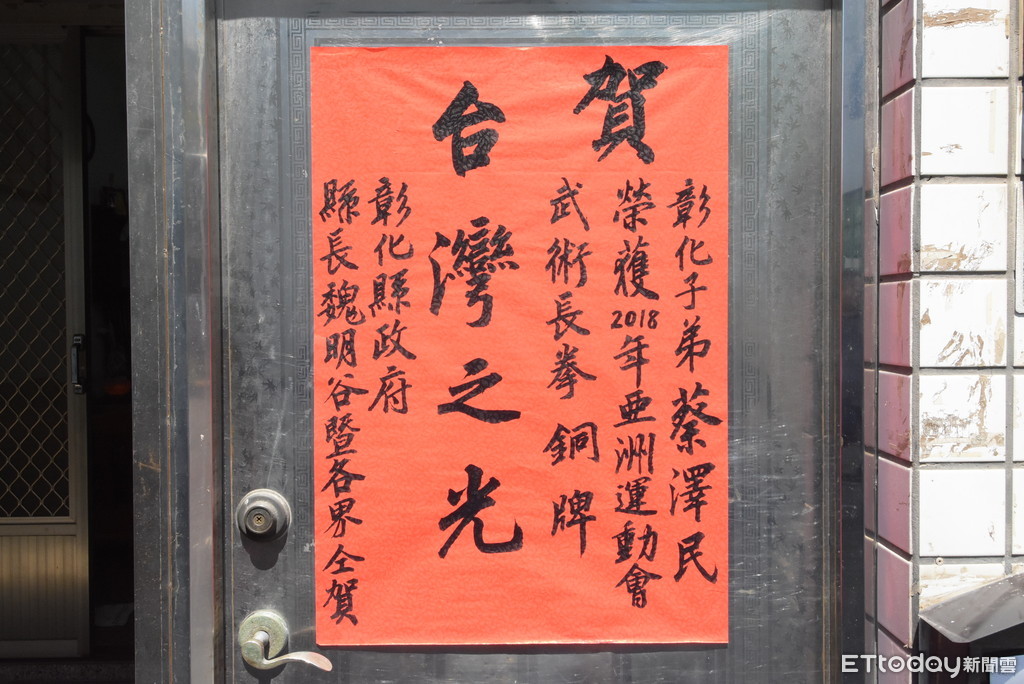 賀
彰化子弟蔡澤民
榮獲2018年亞洲運動會
武術長拳 銅牌
台灣之光
彰化縣政府
縣長魏明谷暨各界仝賀
ETtoday新聞雲